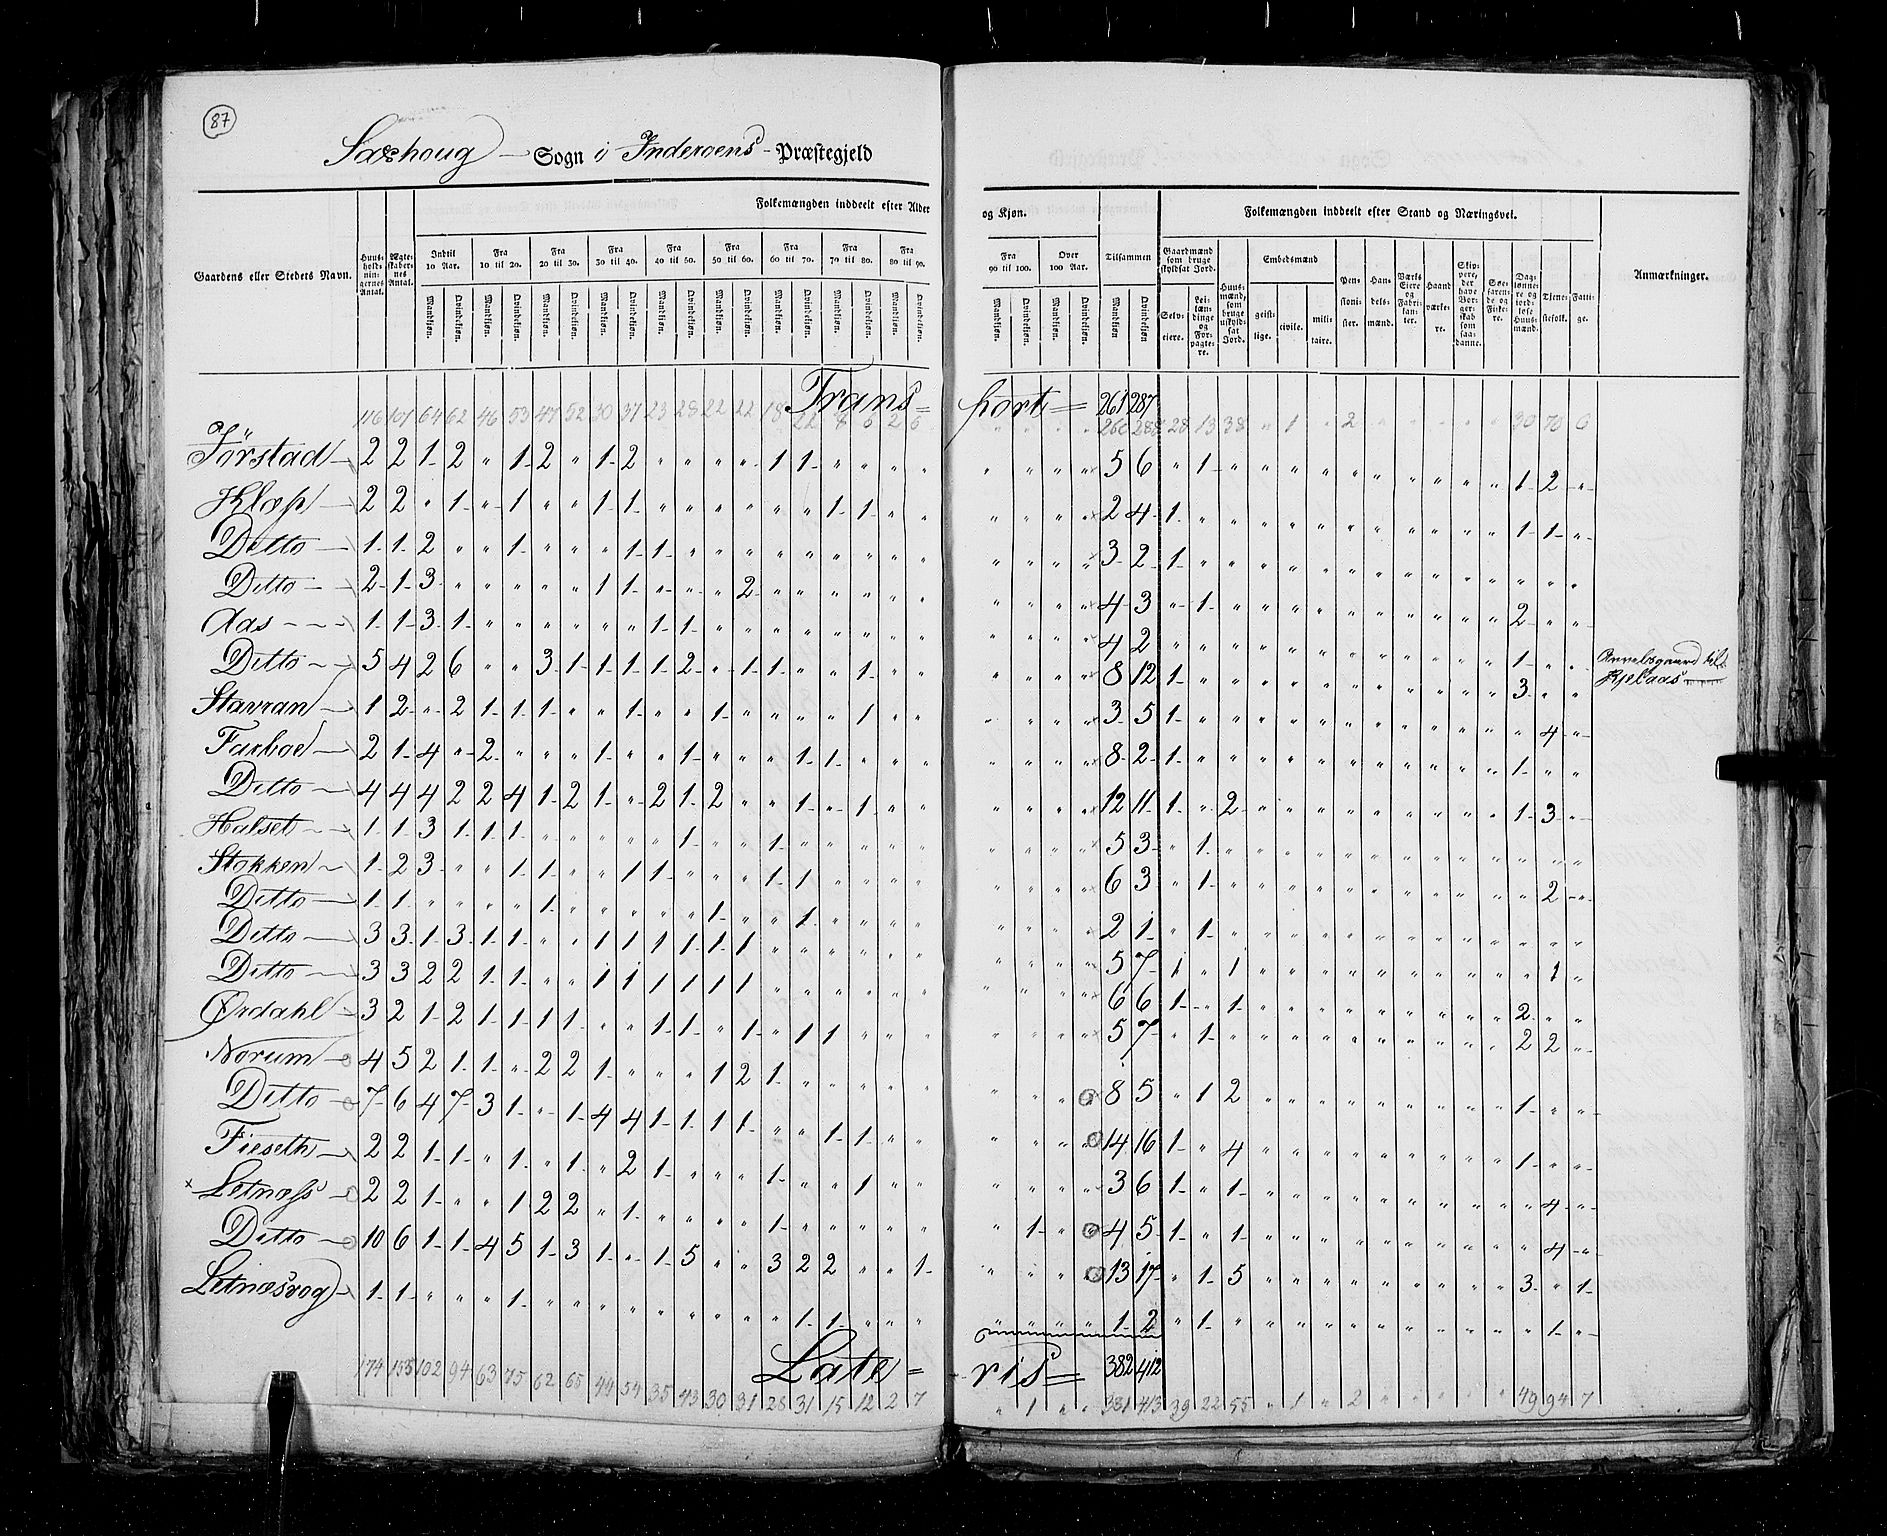 87
Saxhoug Sogn i Inderøens Præstegjeld
Folkemængden inddeelt efter Alder og Kjøn.
Folkemængden inddeelt efter Stand og Næringsvei.
Gaardens eller Stedets Navn.
Huusholdningernes Antal.
Ægteskabernes Antal.
Indtil 10 Aar.
Fra 10 til 20.
Fra 20 til 30.
Fra 30 til 40.
Fra 40 til 50.
Fra 50 til 60.
Fra 60 til 70.
Fra 70 til 80.
Fra 80 til 90.
Fra 90 til 100.
Over 100 Aar.
Tilsammen
Mandkjøn. Qvindekjøn.
Gaardmænd som bruge skyldsat Jord.
Selveiere.
Leilændinge og Forpagtere.
Huusmænd, som bruge uskyldsat Jord.
Embedsmænd
geistlige.
civile.
militaire.
Pensionister.
Handelsmænd.
Værks Eiere og Fabrikanter.
Haandværkere.
Skippere, der have Borgerskab som saadanne.
Søefarende og Fiskere.
Daglønnere og jordløse Huusmænd.
Tjenestefolk.
Fattige.
Anmærkninger.
Transport 261 287
116 107 64 62 46 53 47 52 30 37 23 28 22 22 18 22 8 6 2 6 " " " " 260 288 28 13 38 " 1 " 2 " " " " " 30 70 6
Jørstad 2 2 1 2 " 1 2 " 1 2 " " " " 1 1 " " " " " " " " 5 6 " 1 " " " " " " " " " " 1 2 "
Klæp 2 2 " 1 " 1 " " 1 1 " " " " " " 1 1 " " " " " " 2 4 1 " " " " " " " " " " " 1 1 "
Ditto 1 1 2 " " 1 " " " 1 1 " " " " " " " " " " " " " 3 2 1 " " " " " " " " " " " " " "
Ditto 2 1 3 " " " " " 1 1 " " " 2 " " " " " " " " " " 4 3 " 1 " " " " " " " " " " 2 " "
Aas 1 1 3 1 " " " " " " 1 1 " " " " " " " " " " " " 4 2 " " " " " " " " " " " " 1 " "
Ditto 5 4 2 6 " " 3 1 1 1 1 2 " 1 1 " " 1 " " " " " " 8 12 1 " " " " " " " " " " " 3 " " Avvelsgaard til Kjelaas
Stavran 1 2 " 2 1 1 1 " " 1 " " 1 " " " " 1 " " " " " " 3 5 1 " " " " " " " " " " " " 4 "
Farboe 2 1 4 " 2 " " " 1 " " 1 " " " 1 1 " " " " " " " 8 2 1 " " " " " " " " " " " 1 " "
Ditto 4 4 4 2 2 4 1 2 1 " 2 1 2 " " 1 " 1 " " " " " " 12 11 1 " 2 " " " " " " " " " 1 3 "
Halset 1 1 3 1 1 1 " " " " " 1 " " 1 " " " " " " " " " 5 3 " 1 " " " " " " " " " " " " "
Stokken 1 2 3 " " 1 1 " 1 1 " " " " 1 1 " " " " " " " " 6 3 " 1 " " " " " " " " " " " 2 "
Ditto 1 1 " " " " 1 " " " " " 1 " " 1 " " " " " " " " 2 1 " 1 " " " " " " " " " " " " "
Ditto 3 3 1 3 1 1 " " 1 1 1 1 1 1 " " " " " " " " " " 5 7 1 " 1 " " " " " " " " " " 1 "
Ditto 3 3 2 2 1 1 " " 1 1 1 1 1 1 " " " " " " " " " " 6 6 1 " 1 " " " " " " " " " 2 " "
Ørdahl 3 2 1 2 1 1 1 1 " " 1 1 " 1 " 1 1 " " " " " " " 5 7 " 1 " " " " " " " " " " 2 2 "
Norum 4 5 2 1 1 " 2 2 1 " " " 1 2 1 " " " " " " " " " 8 5 " 1 2 " " " " " " " " " 1 " "
Ditto 7 6 4 7 3 1 " 1 4 4 1 1 1 1 " " 1 1 " " " " " " 14 16 1 " 4 " " " " " " " " " 1 " "
Fieseth 2 2 1 1 " 1 " 1 " 2 1 " " " 1 " " 1 " " " " " " 3 6 1 " 1 " " " " " " " " " " 4 "
x Letnæss 2 2 1 " " 1 2 2 " 1 " " " " 1 " " " " " " 1 " " 4 5 1 " 1 " " " " " " " " " " 4 "
Ditto 10 6 1 1 4 5 1 3 1 " 1 5 " " 3 2 2 " " 1 " " " " 13 17 " 1 5 " " " " " " " " " 3 " 1
Letnæsvog 1 1 " " " 1 " " " " " " " " " 1 1 " " " " " " " 1 2 " 1 " " " " " " " " " " " 1 "
Lateris 382 412
174 155 102 94 63 75 62 65 44 54 35 43 30 31 28 31 15 12 2 7 " 1 " " 381 413 39 22 55 " 1 " 2 " " " " " 49 94 7